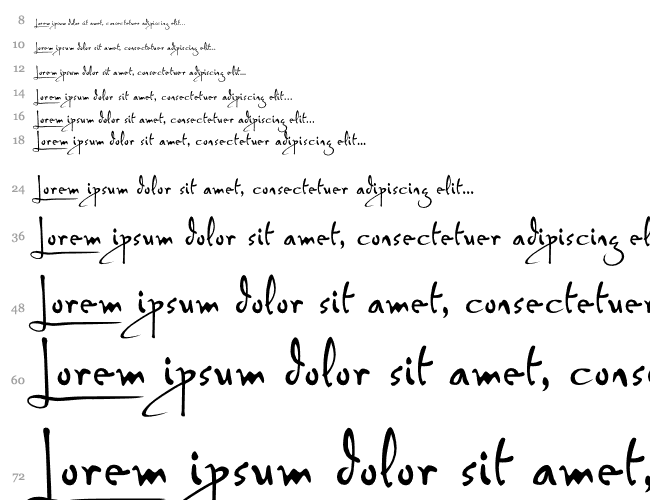 8 Lorem ipsum dolor sit amet, consectetuer adipiscing elit...
10 Lorem ipsum dolor sit amet, consectetuer adipiscing elit...
12 Lorem ipsum dolor sit amet, consectetuer adipiscing elit...
14 Lorem ipsum dolor sit amet, consectetuer adipiscing elit...
16 Lorem ipsum dolor sit amet, consectetuer adipiscing elit...
18 Lorem ipsum dolor sit amet, consectetuer adipiscing elit...
24 Lorem ipsum dolor sit amet, consectetuer adipiscing elit...
36 Lorem ipsum dolor sit amet, consectetuer adipiscing el
48 Lorem ipsum dolor sit amet, consectetuer
60 Lorem ipsum dolor sit amet, cons
72 Lorem ipsum dolor sit amet,